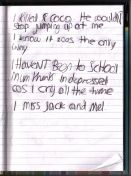 I killed COCO. He wouldn't
stop jumping at me
I know it was the only
way.
I HAVENT Been to School
mum thinks im depressed
cos I cry all the time
I miss Jack and mel